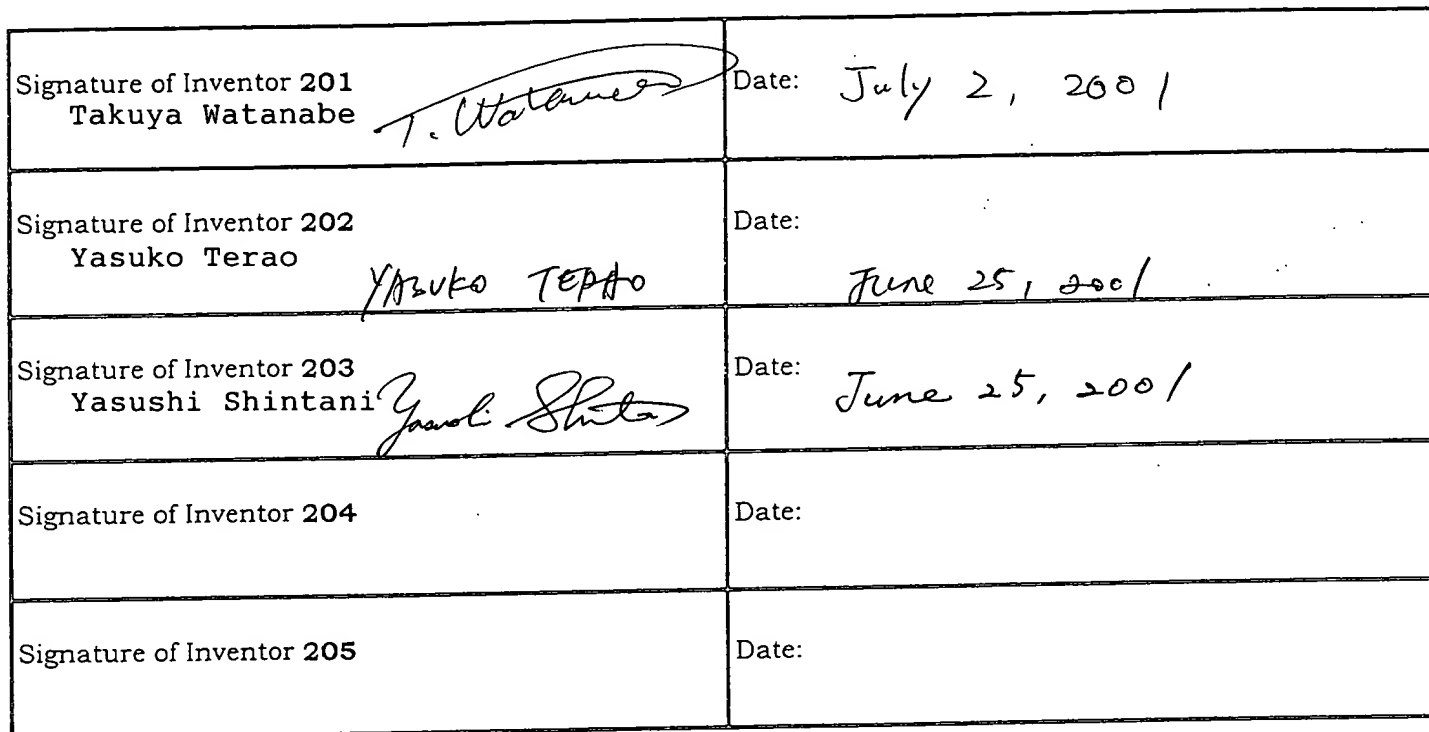 Signature of Inventor 201
Takuya Watanabe
T. Watanabe
Date: July 2, 2001
Signature of Inventor 202
Yasuko Terao
YASUKO TERAO
Date:
June 25, 2001
Signature of Inventor 203
Yasushi Shintani
Yasushi Shintani
Date: June 25, 2001
Signature of Inventor 204
Date:
Signature of Inventor 205
Date: